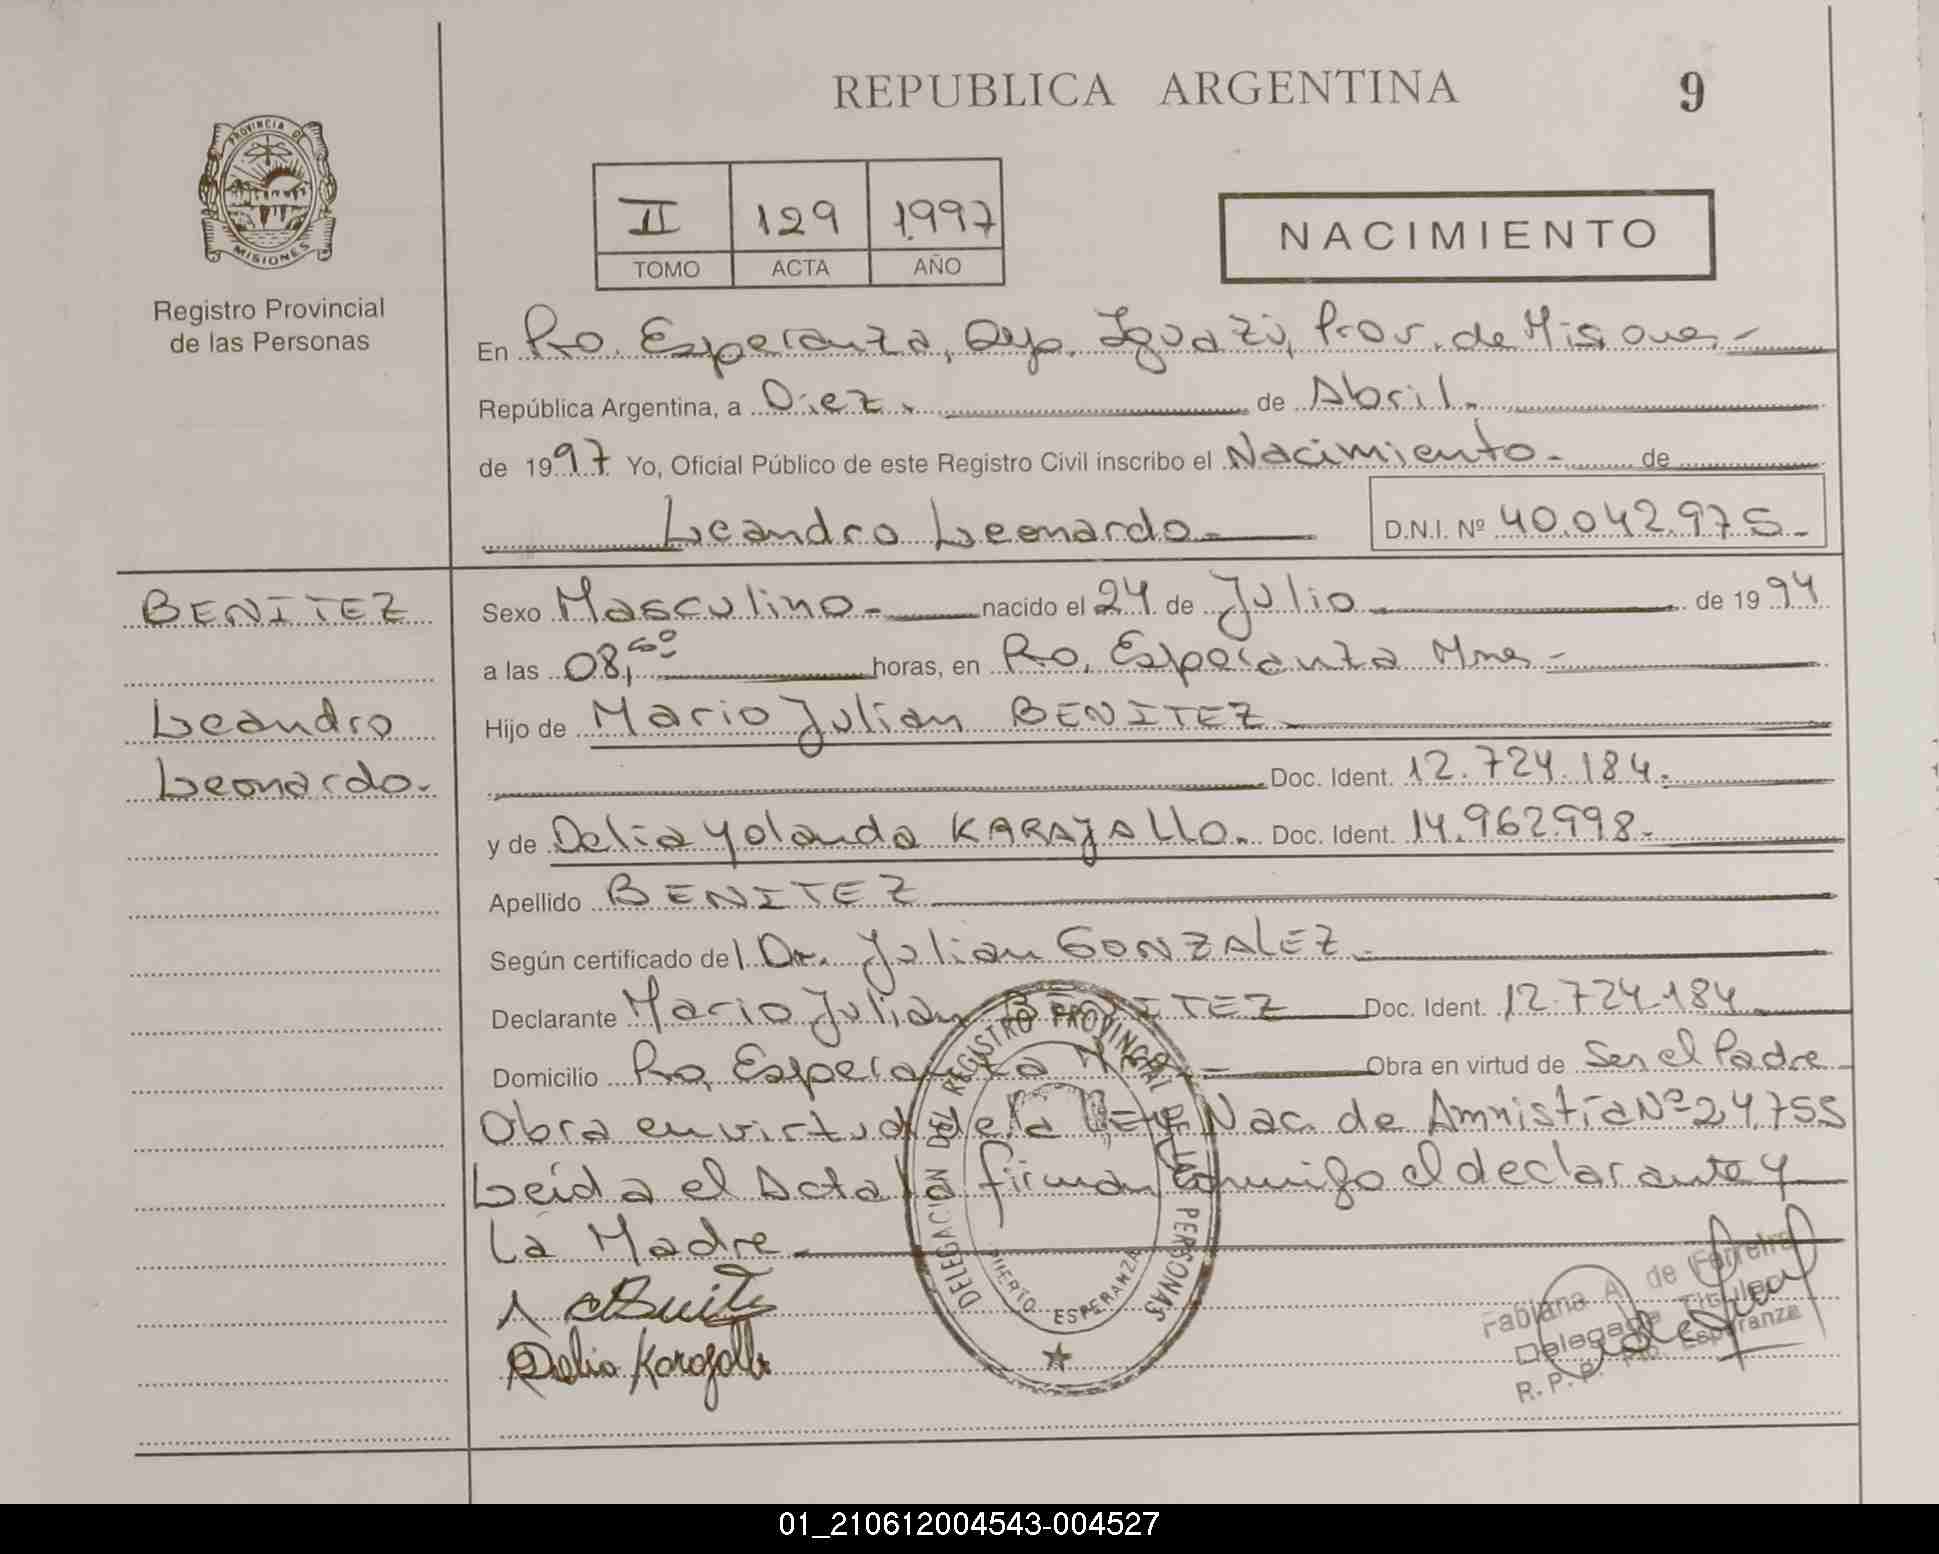 REPUBLICA ARGENTINA 9
PROVINCIA DE
MISIONES
Registro Provincial
de las Personas
II 129 1997
TOMO ACTA AÑO
NACIMIENTO
En Pto. Esperanza, Dep. Iguazú, Prov. de Misiones-
República Argentina, a Diez. de Abril.
de 1997 Yo, Oficial Público de este Registro Civil inscribo el Nacimiento- de
Leandro Leonardo- D.N.I. Nº 40.042.975-
BENITEZ
Leandro
Leonardo.
Sexo Masculino- nacido el 24 de Julio de 1994
a las 08, horas, en Pto. Esperanza Mnes-
Hijo de Mario Julian BENITEZ-
Doc. Ident. 12.724.184.
y de Delia Yolanda KARAJALLO. Doc. Ident. 14.962.998-
Apellido BENITEZ
Según certificado del Dr. Julian GONZALEZ-
Declarante Mario Julian BENITEZ Doc. Ident. 12.724.184
Domicilio Pto. Esperanza Obra en virtud de Ser el Padre
Obra en virtud de la Ley Nac. de Amnistía Nº 24.755
Leída el Acta la firman conmigo el declarante y
La Madre-
Delia Karajallo
DELEGACION DEL REGISTRO PROVINCIAL DE LAS PERSONAS
PUERTO ESPERANZA
Fabiana A. de Ferreira
Delegada Titular
R.P.P. Pto. Esperanza
01_210612004543-004527